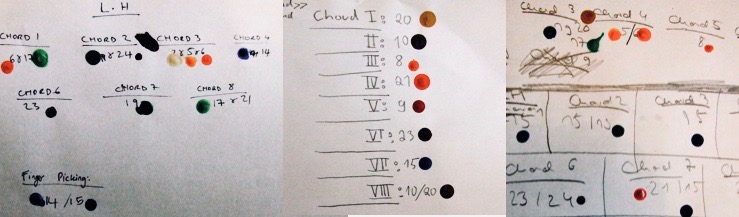 L.H
CHORD 1 CHORD 2 CHORD 3 CHORD 4
6 & 17 & 24 2 & 5 & 6 14
CHORD 6 CHORD 7 CHORD 8
23 19 17 & 21
Figer Picking:
14 / 15
Choud I: 20
II: 10
III: 8
IV: 21
V: 9
VI: 23
VII: 15
VIII: 10/20
Chord 3 Chord 4 Chord 5
19 20 5/6 8
17
9
Chord 2 Chord 3
15 15 / 19 15
Chord 6 Chord 7
23 / 24 21 / 15